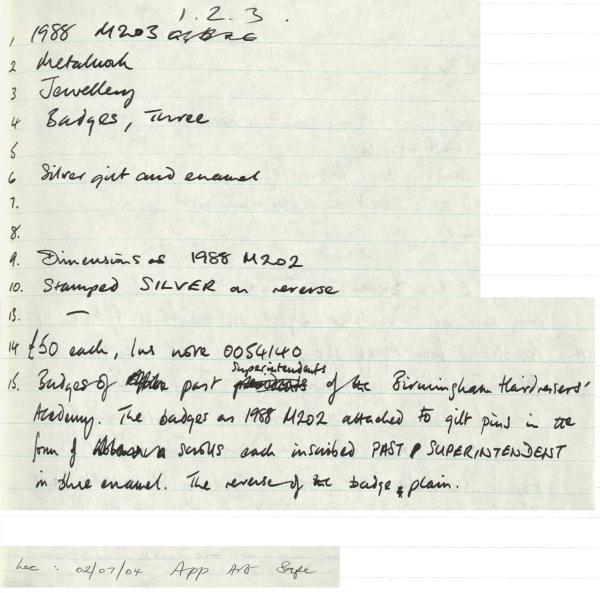 1. 2. 3.
1 1988 M203
2 Metalwork
3 Jewellery
4 Badges, Three
5
6 Silver gilt and enamel
7.
8.
9. Dimensions as 1988 M202
10. Stamped SILVER on reverse
13. —
14 £50 each, Ins note 0054140
Superintendents
15. Badges of past of the Birmingham Hairdressers'
Academy. The badges as 1988 M202 attached to gilt pins in the
form of scrolls each inscribed PAST SUPERINTENDENT
in blue enamel. The reverse of the badge plain.
Loc : 02/07/04 App Art Safe